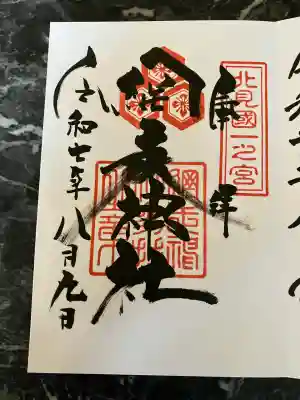 奉拝
北見國一之宮
網走神社
令和七年八月九日